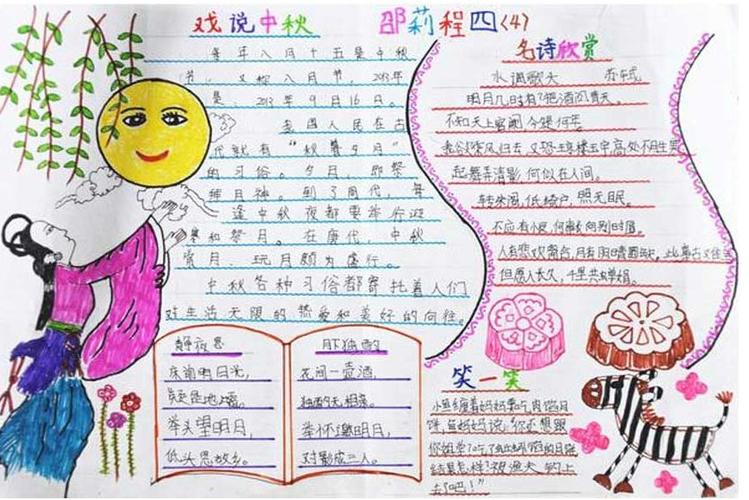 戏说中秋
邵莉程四(4)
每年八月十五是中秋
节,又称八月节,2013年
是,2013年9月16日。
我国人民在古
代就有“秋暮夕月”
的习俗。夕月,即祭
拜月神。到了周代,每
逢中秋夜都要举行迎
寒和祭月。在唐代,中秋
赏月、玩月颇为盛行。
中秋各种习俗都寄托着人们
对生活无限的热爱和美好的向往。
静夜思
床前明月光,
疑是地上霜。
举头望明月,
低头思故乡。
月下独酌
花间一壶酒,
独酌无相亲。
举杯邀明月,
对影成三人。
名诗欣赏
水调歌头 苏轼
明月几时有?把酒问青天。
不知天上宫阙,今夕是何年。
我欲乘风归去 又恐琼楼玉宇高处不胜寒
起舞弄清影,何似在人间。
转朱阁,低绮户,照无眠。
不应有恨,何 向别时圆。
人有悲欢离合,月有阴晴圆缺,此事古难全
但愿人长久,千里共婵娟。
笑一笑
小鱼缠着妈妈要吃肉馅月
饼,鱼妈妈说:你还想跟
你姐学?吃了 馅的月饼
结果怎样?被渔夫 钓上
去了吧!”